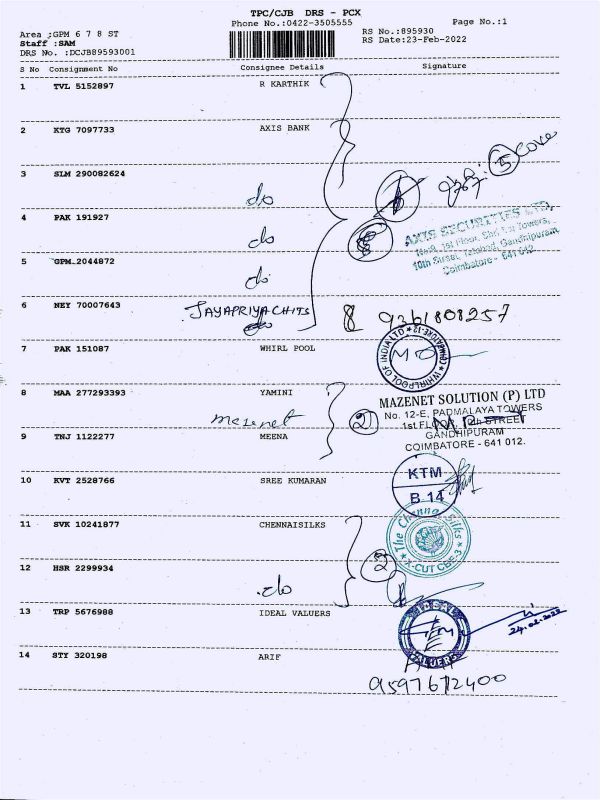 TPC/CJB DRS - PCX
Phone No.:0422-3505555
Page No.:1
Area ;GPM 6 7 8 ST
RS No.:895930
Staff :SAM
RS Date:23-Feb-2022
DRS No. :DCJB89593001
S No Consignment No Consignee Details Signature
1 TVL 5152897 R KARTHIK
2 KTG 7097733 AXIS BANK
3 SLM 290082624
do
5
4 PAK 191927
do
AXIS SECURITIES LTD,
1st Floor, Towers,
10th Street, Gandhipuram,
Coimbatore - 641 012.
5 GPM 2044872
do
6 NEY 70007643 JAYAPRIYA CHITS
do
8 9361808257
7 PAK 151087 WHIRL POOL
WHIRLPOOL OF INDIA LTD COIMBATORE-12
8 MAA 277293393 YAMINI
mazenet
2
MAZENET SOLUTION (P) LTD
No. 12-E, PADMALAYA TOWERS
1st FLOOR, STREET
GANDHIPURAM
COIMBATORE - 641 012.
9 TNJ 1122277 MEENA
10 KVT 2528766 SREE KUMARAN
KTM
B 14
11 SVK 10241877 CHENNAISILKS
The Chennai Silks
X-CUT CBE-3
12 HSR 2299934
do
2
13 TRP 5676988 IDEAL VALUERS
IDEAL VALUERS
24.02.2022
14 STY 320198 ARIF
9597612400